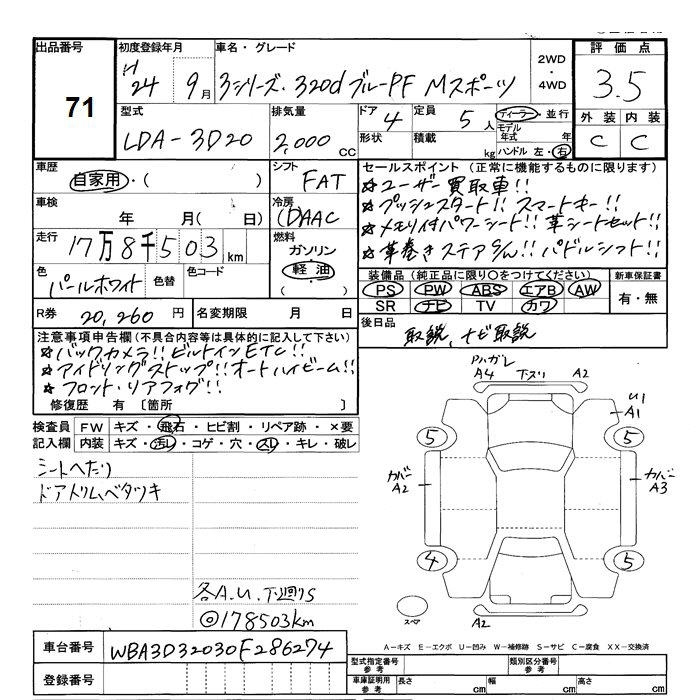 出品番号
71
初度登録年月
H24 9月
車名・グレード
3シリーズ・320d ブルーPF Mスポーツ
2WD
・
4WD
評価点
3.5
型式
LDA-3D20
排気量
2,000cc
ドア
4
形状
定員
5人
積載
kg
ディーラー・並行
モデル
年式 年
ハンドル 左・右
外装 内装
C C
車歴
自家用・( )
シフト
FAT
車検
年 月( 日)
冷房
(D)AAC
走行
17万8千503km
燃料
ガソリン
軽油
( )
色
パールホワイト
色替
色コード
R券
20,260円
名変期限 月 日
セールスポイント(正常に機能するものに限ります)
☆ユーザー買取車!!
☆プッシュスタート!! スマートキー!!
☆メモリ付パワーシート!! 革シートセット!!
☆革巻きステアS/W!! パドルシフト!!
装備品(純正品に限り○をつけてください)
新車保証書
PS PW ABS エアB AW
有・無
SR ナビ TV カワ
後日品
取説、ナビ取説
注意事項申告欄(不具合内容等は具体的に記入して下さい)
☆バックカメラ!! ビルトインETC!!
☆アイドリングストップ!! オートハイビーム!!
☆フロント・リアフォグ!!
修復歴 有 [箇所 ]
検査員
記入欄
FW キズ・飛石・ヒビ割・リペア跡・×要
内装 キズ・汚レ・コゲ・穴・スレ・キレ・破レ
シートへたり
ドアトリムベタツキ
各A.U.下廻りS
◎178503km
Pハガレ
A4 下スリ A2
U1
A1
5 5
カバー
A2
カバー
A3
4 5
スペア
A2
A-キズ E-エクボ U-凹み W-補修跡 S-サビ C-腐食 XX-交換済
車台番号
WBA3D32030F286274
登録番号
型式指定番号
参考
類別区分番号
参考
車庫証明用
参考
長さ cm 幅 cm 高さ cm